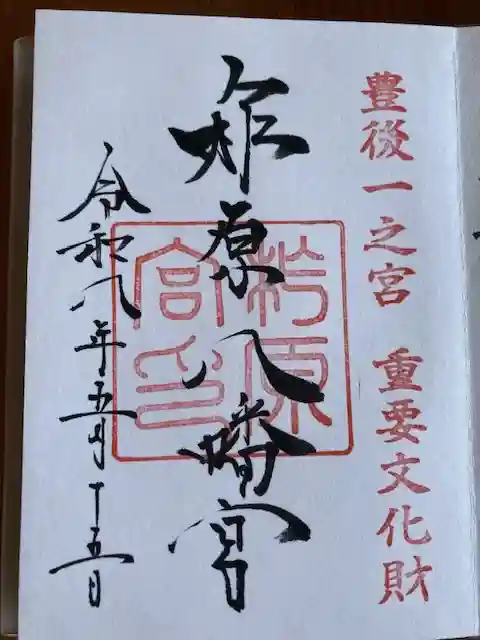 豊後一之宮　重要文化財
柞原八幡宮
柞原宮印
令和八年五月十五日